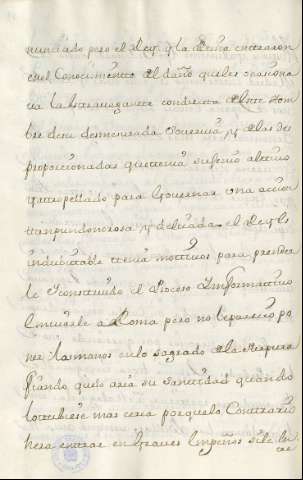 nunciado pero el Rey, y la Reina entraron
en el Conocimiento del daño que les ocasiona
va la extravagante conducta de este Hom
bre de su desmesurada Sovervia y de las des
proporcionadas que tenia su genio altivo
y atropellado para Governar una accion
tan pundonorosa y delicada. el Rey
indubitable tenia motivos para prender
le y construido el Proceso Informativo
embiarle a Roma pero no le parecio po
ner las manos en lo sagrado de la Purpura
fiando que lo aria su Santidad quando
lo tubiese mas cerca porque lo Contrario
hera entrar en graves empeños si le